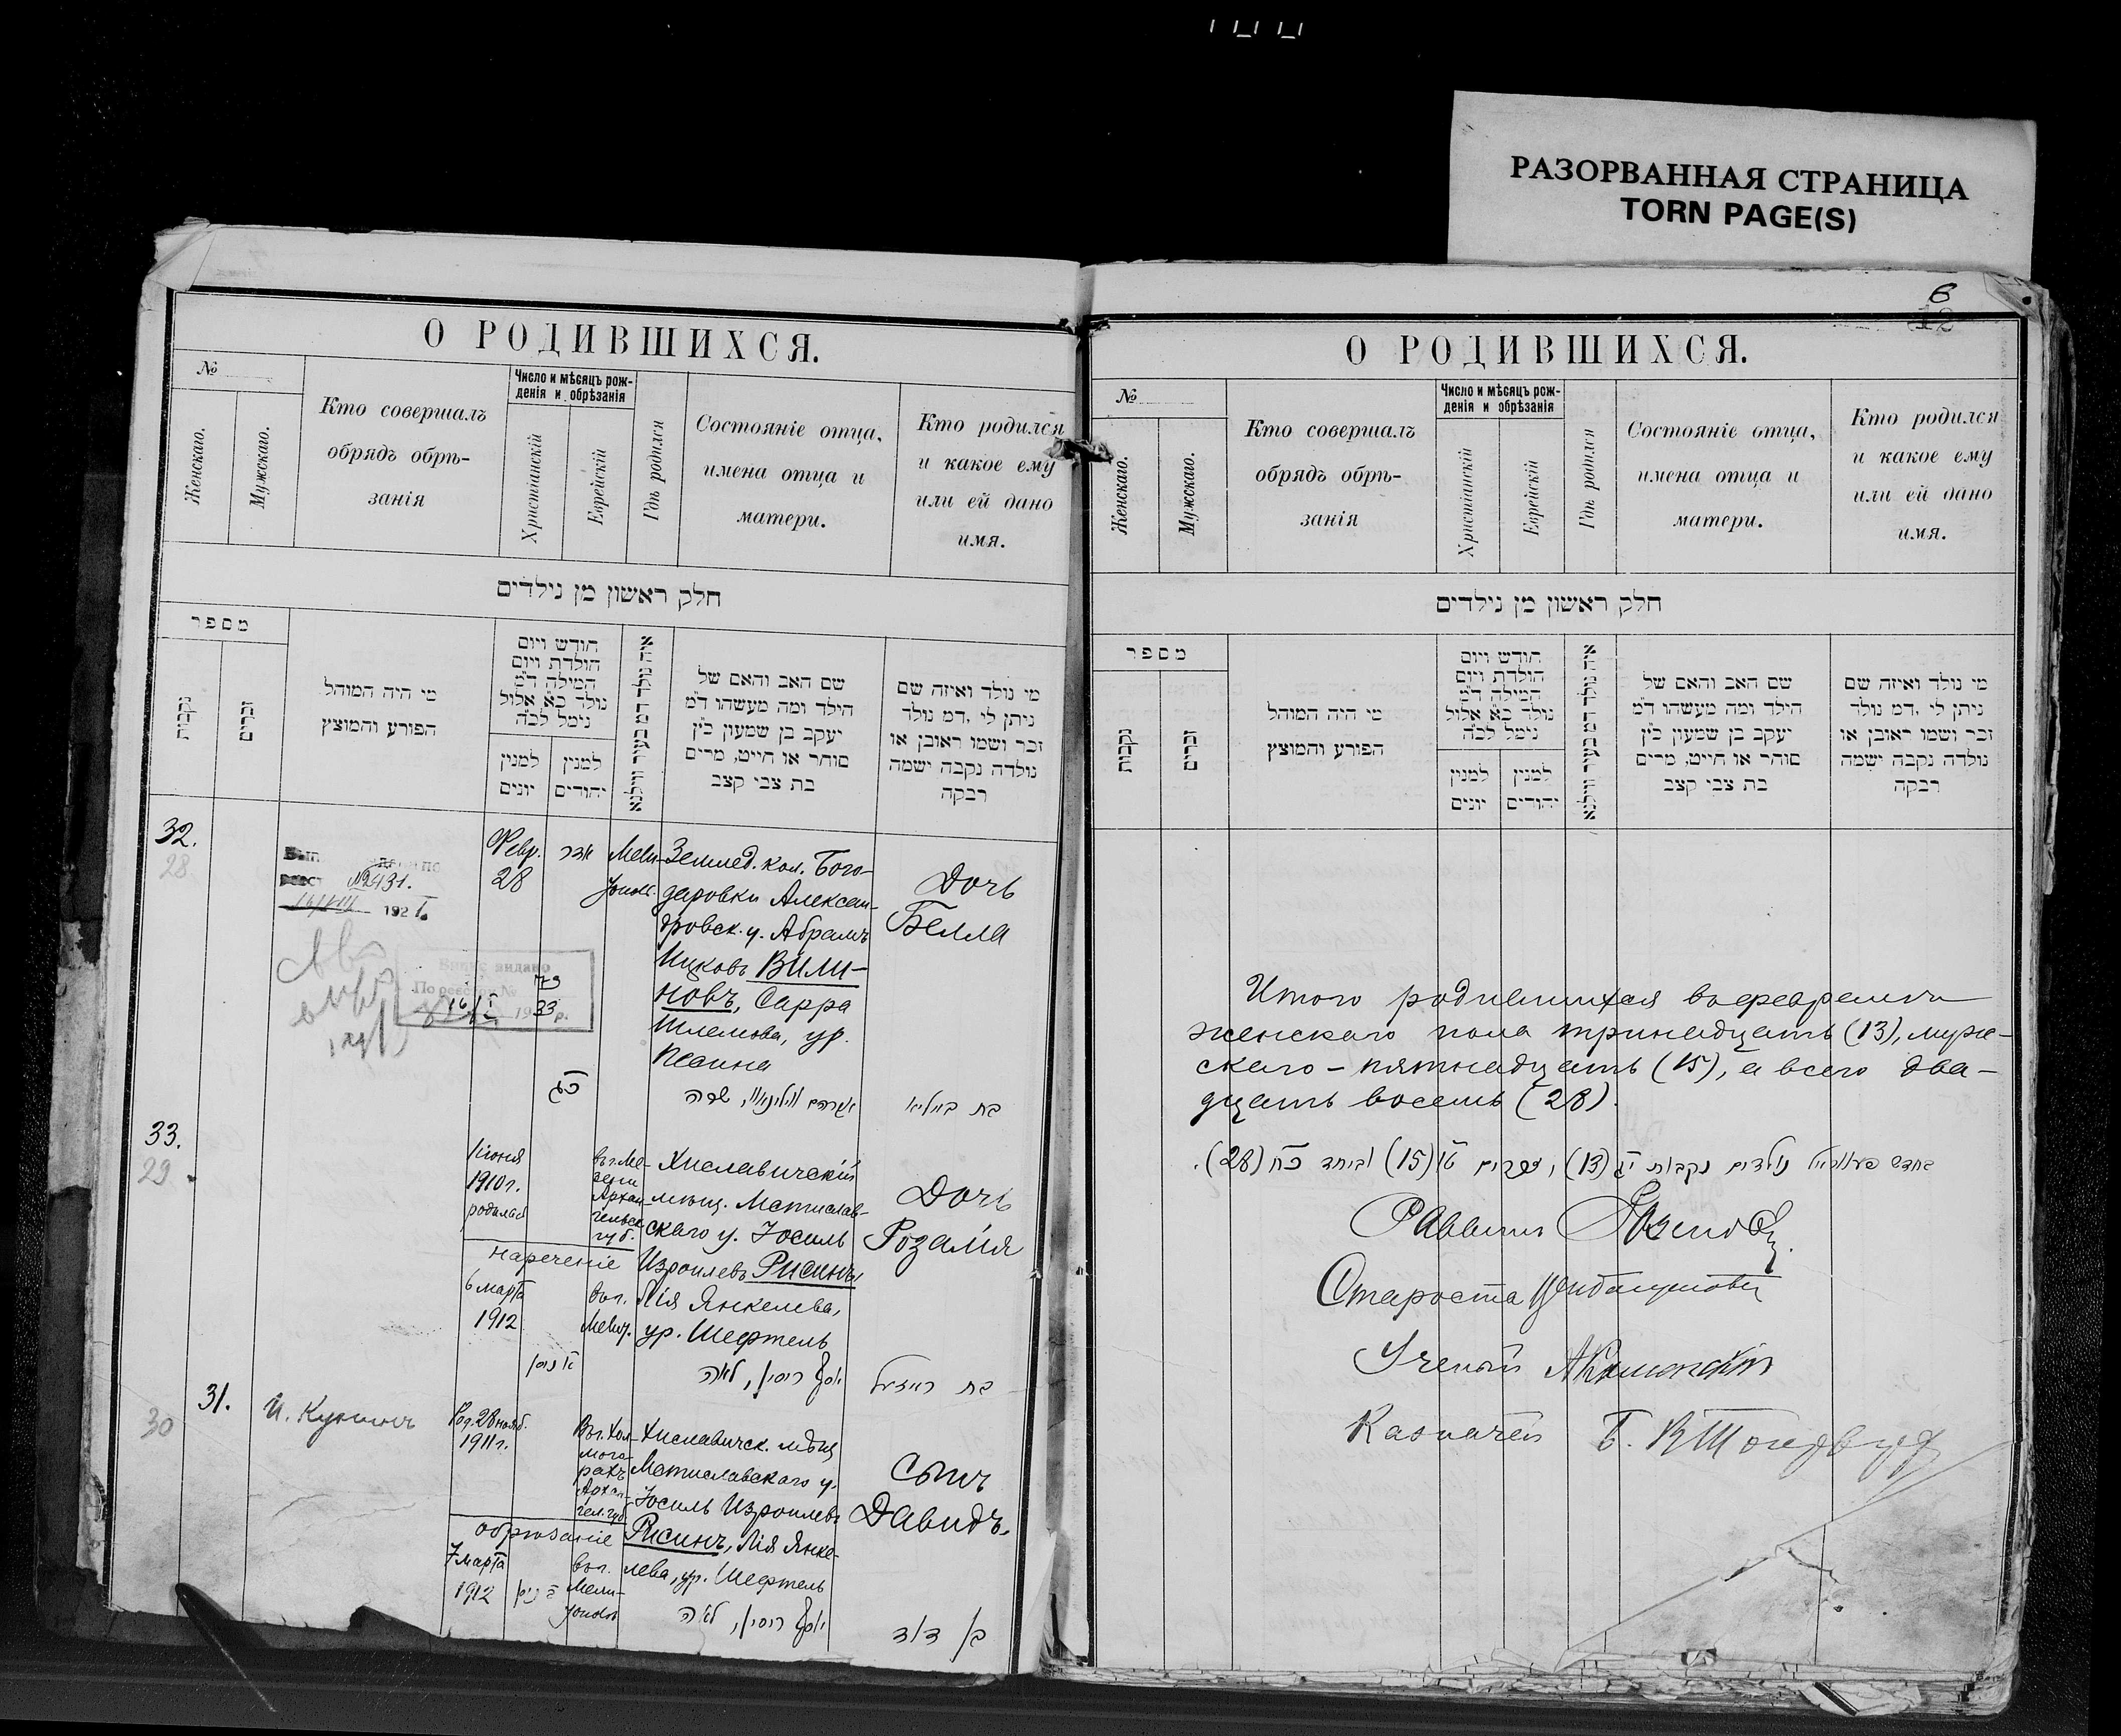 РАЗОРВАННАЯ СТРАНИЦА
TORN PAGE(S)
О РОДИВШИХСЯ.
№
Женскаго.
Мужскаго.
Кто совершалъ
обрядъ обрѣ-
занія
Число и мѣсяцъ рож-
денія и обрѣзанія
Христіанскій
Еврейскій
Гдѣ родился
Состояніе отца,
имена отца и
матери.
Кто родился
и какое ему
или ей дано
имя.
חלק ראשון מן נילדים
מספר
נקבות
זכרים
מי היה המוהל
הפורע והמוצץ
חודש ויום
הולדת ויום
המילה ד״מ
נולד כ״א אלול
נימל לכ״ה
למנין
יונים
למנין
יהודים
איה נולד דמ בעיר ווילנא
שם האב והאם של
הילד ומה מעשהו ד״מ
יעקב בן שמעון כ״ץ
סוחר או חייט, מרים
בת צבי קצב
מי נולד ואיזה שם
ניתן לי, דמ נולד
זכר ושמו ראובן או
נולדה נקבה ישמה
רבקה
32.
28
№2431.
192
Февр.
28
אדר
Мели-
тополь
Землед. кол. Бого-
даровки Алексан-
дровск. у. Абрамъ
Ицковъ Вили-
новъ, Сарра
Шлемова, ур.
Дочь
Белла
Видано
По реестру №
79
16/I 1933 р.
33.
29
Іюня
1910 г.
родилась
въ г. Ме-
зени
Архан-
гельск.
губ.
нареченіе
6 марта
1912
въ г.
Мелит.
Хиславичскій
мѣщ. Мстислав-
скаго у. Іосиль
Израилевъ Рисинъ,
Лія Янкелева,
ур. Шефтель
יוסף ריסין, לאה
Дочь
Розалія
31.
30
И. Кунинъ
Род. 28 нояб.
1911 г.
Въ г. Хол-
мого-
рахъ
Архан-
гел. губ.
обрѣзаніе
7 марта
1912
въ г.
Мели-
тополѣ
Хиславичск. мѣщ.
Мстиславскаго у.
Іосиль Израилевъ
Рисинъ, Лія Янке-
лева, ур. Шефтель
יוסף ריסין, לאה
Сынъ
Давидъ.
בן דוד
6
12
О РОДИВШИХСЯ.
№
Женскаго.
Мужскаго.
Кто совершалъ
обрядъ обрѣ-
занія
Число и мѣсяцъ рож-
денія и обрѣзанія
Христіанскій
Еврейскій
Гдѣ родился
Состояніе отца,
имена отца и
матери.
Кто родился
и какое ему
или ей дано
имя.
חלק ראשון מן נילדים
מספר
נקבות
זכרים
מי היה המוהל
הפורע והמוצץ
חודש ויום
הולדת ויום
המילה ד״מ
נולד כ״א אלול
נימל לכ״ה
למנין
יונים
למנין
יהודים
איה נולד דמ בעיר ווילנא
שם האב והאם של
הילד ומה מעשהו ד״מ
יעקב בן שמעון כ״ץ
סוחר או חייט, מרים
בת צבי קצב
מי נולד ואיזה שם
ניתן לי, דמ נולד
זכר ושמו ראובן או
נולדה נקבה ישמה
רבקה
Итого родившихся въ феврали
женскаго пола тринадцать (13), муж-
скаго - пятнадцать (15), а всего два-
дцать восемь (28).
בחדש פעווראל נולדים נקבות י״ג (13), זכרים ט״ו (15) וביחד כ״ח (28).
Раввинъ
Староста
Ученый
Казначей